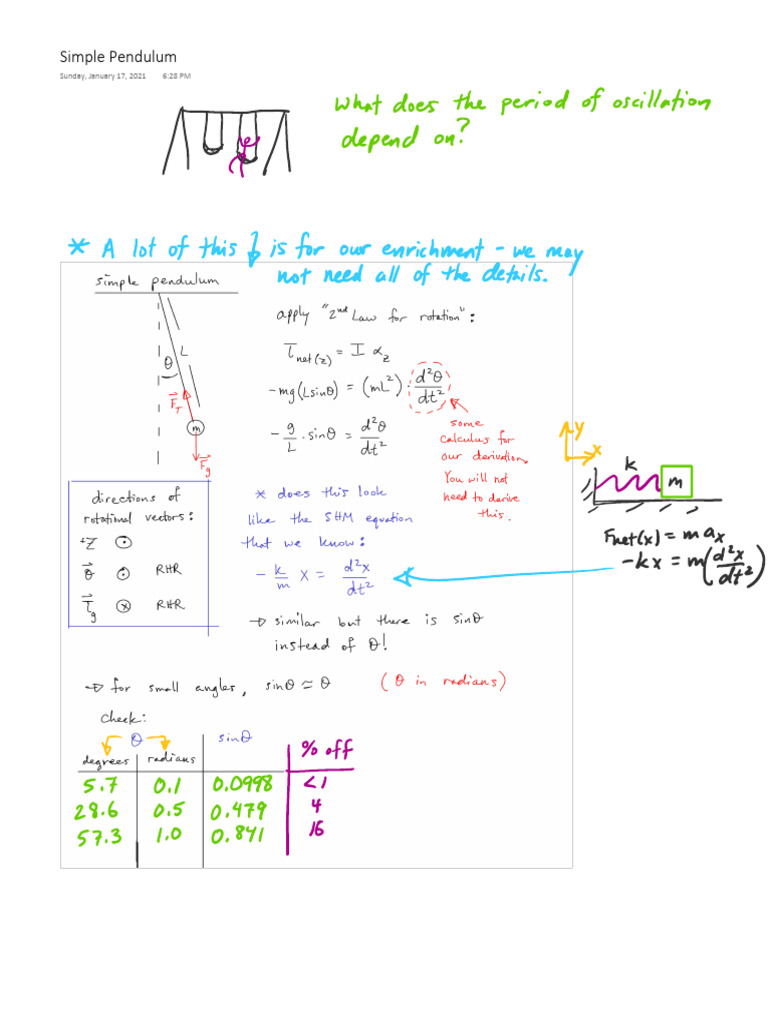 Simple Pendulum
Sunday, January 17, 2021 6:28 PM
What does the period of oscillation
depend on?
* A lot of this ↓ is for our enrichment - we may
not need all of the details.
simple pendulum
θ
L
F⃗_T
m
F⃗_g
apply "2nd Law for rotation":
τ_net(z) = I α_z
-mg(Lsinθ) = (mL²) · d²θ/dt²
-g/L · sinθ = d²θ/dt²
some
calculus for
our derivation.
You will not
need to derive
this.
directions of
rotational vectors:
+z⃗ ⊙
θ⃗ ⊙ RHR
τ⃗_g ⊗ RHR
* does this look
like the SHM equation
that we know:
-k/m x = d²x/dt²
→ similar but there is sinθ
instead of θ!
y
x
k
m
Fnet(x) = m a_x
-kx = m(d²x/dt²)
→ for small angles, sinθ ≃ θ (θ in radians)
check:
θ
degrees radians sinθ % off
5.7 0.1 0.0998 <1
28.6 0.5 0.479 4
57.3 1.0 0.841 16